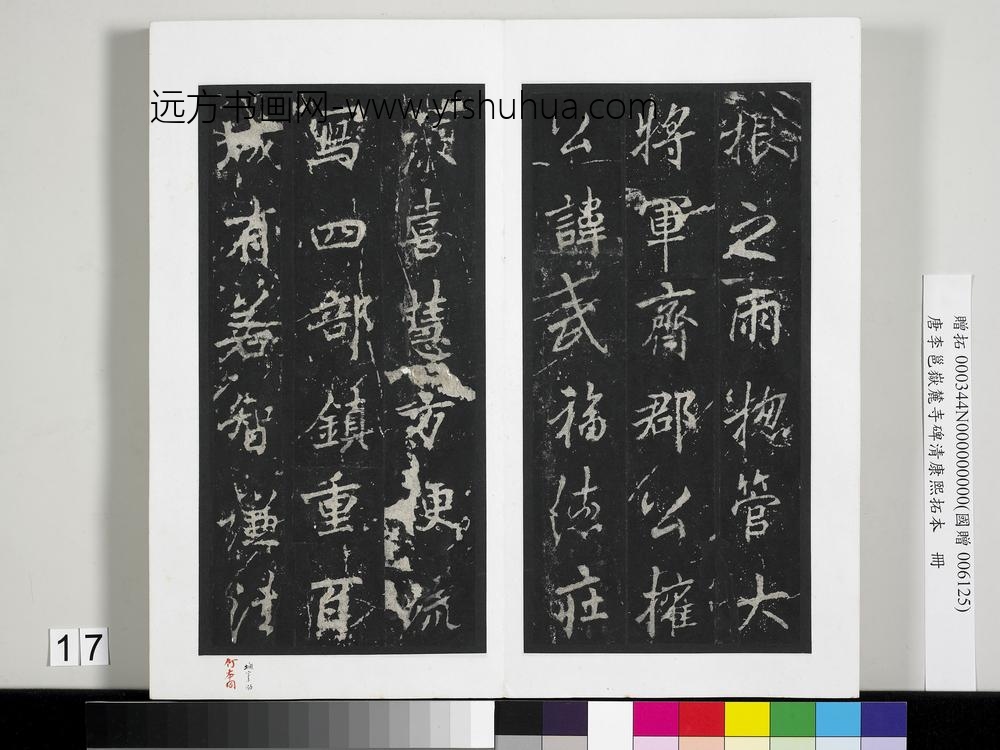 远方书画网-www.yfshuhua.com
振之雨惣管大
將軍齊郡公權
公諱武福德莊
喜慧方便流
寫四部鎮重百
城有若智謙法
贈拓 000344N000000000(國贈 006125)
唐李邕嶽麓寺碑清康熙拓本 冊
17